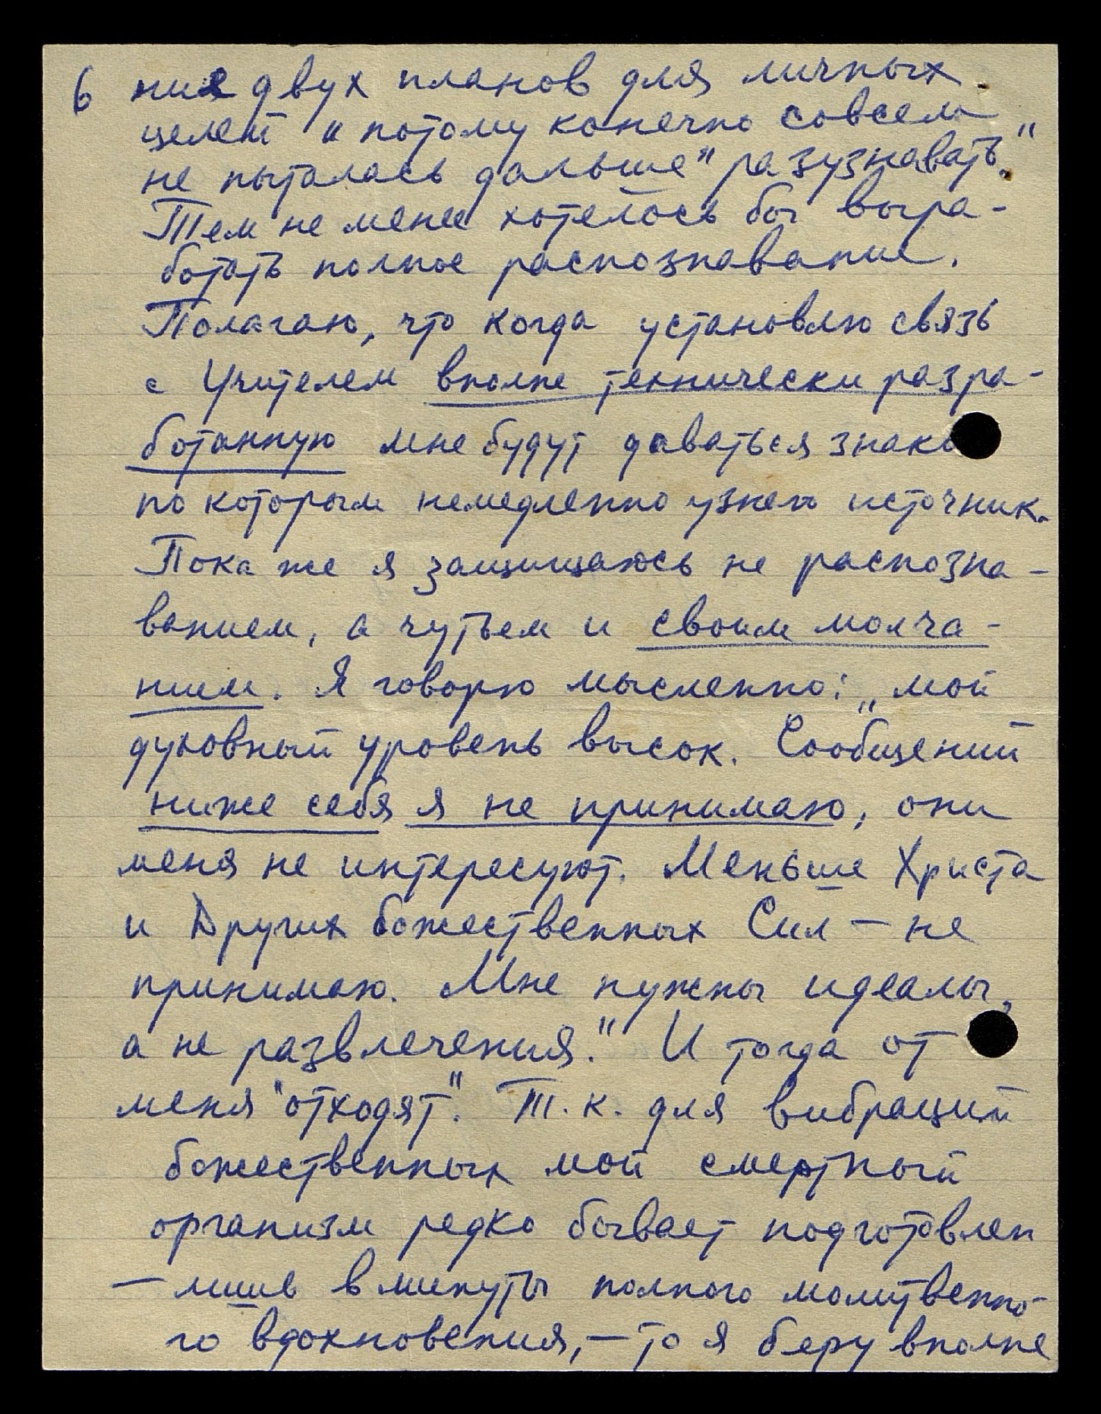 6 ния двух планов для личных
целей и потому конечно совсем
не пыталась дальше "разузнавать."
Тем не менее хотелось бы выра-
ботать полное распознавание.
Полагаю, что когда установлю связь
с Учителем вполне технически разра-
ботанную мне будут даваться знаки
по которым немедленно узнаю источник.
Пока же я защищаюсь не распозна-
ванием, а чутьем и своим молча-
нием. Я говорю мысленно: „мой
духовный уровень высок. Сообщений
ниже себя я не принимаю, они
меня не интересуют. Меньше Христа
и Других божественных Сил — не
принимаю. Мне нужны идеалы,
а не развлечения." И тогда от
меня "отходят". Т.к. для вибраций
божественных мой смертный
организм редко бывает подготовлен
— лишь в минуты полного молитвенно-
го вдохновения, — то я беру вполне